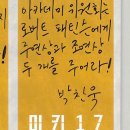 아카데미 위원회는
로버트 패틴슨에게
주연상과 조연상
두 개를 주어라!
박찬욱
미키 17